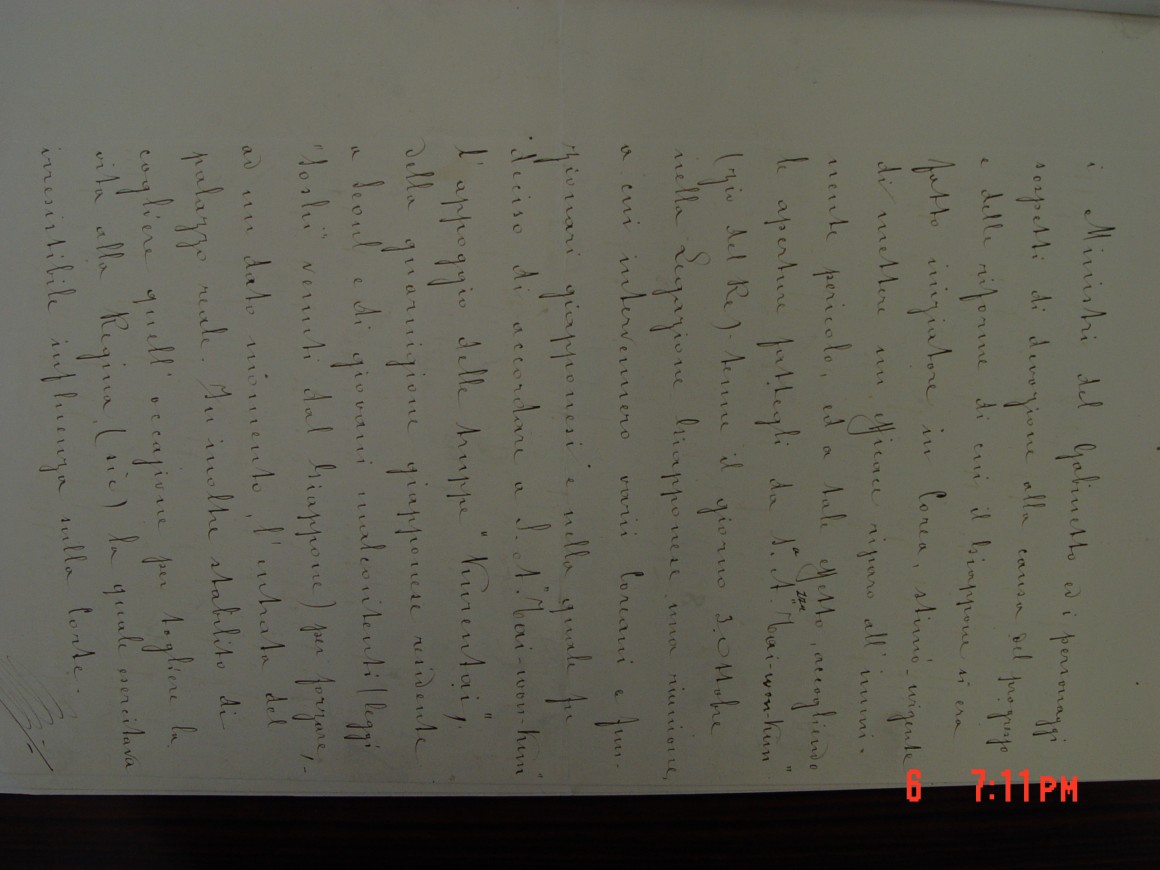 i Ministri del Gabinetto ed i personaggi
sospetti di devozione alla causa del progresso
e delle riforme di cui il Giappone si era
fatto iniziatore in Corea, stimò urgente
di mettere un efficace riparo all'immi-
nente pericolo, ed a tale effetto, accogliendo
le aperture fattegli da S. A. "Tai-won-Kun"
(zio del Re) tenne il giorno 3 ottobre
nella Legazione Giapponese una riunione,
a cui intervennero varii Coreani e fun-
zionari giapponesi e nella quale fu
deciso di accordare a S. A. "Tai-won-Kun"
l'appoggio delle truppe "Kunrentai",
della guarnigione giapponese residente
a Seoul e di giovani malcontenti (leggi
"Soshi" venuti dal Giappone) per forzare,
ad un dato momento, l'entrata del
palazzo reale. Fu inoltre stabilito di
cogliere quell'occazione per togliere la
vita alla Regina, (sic) la quale esercitava
irresistibile influenza sulla Corte.
6 7:11PM